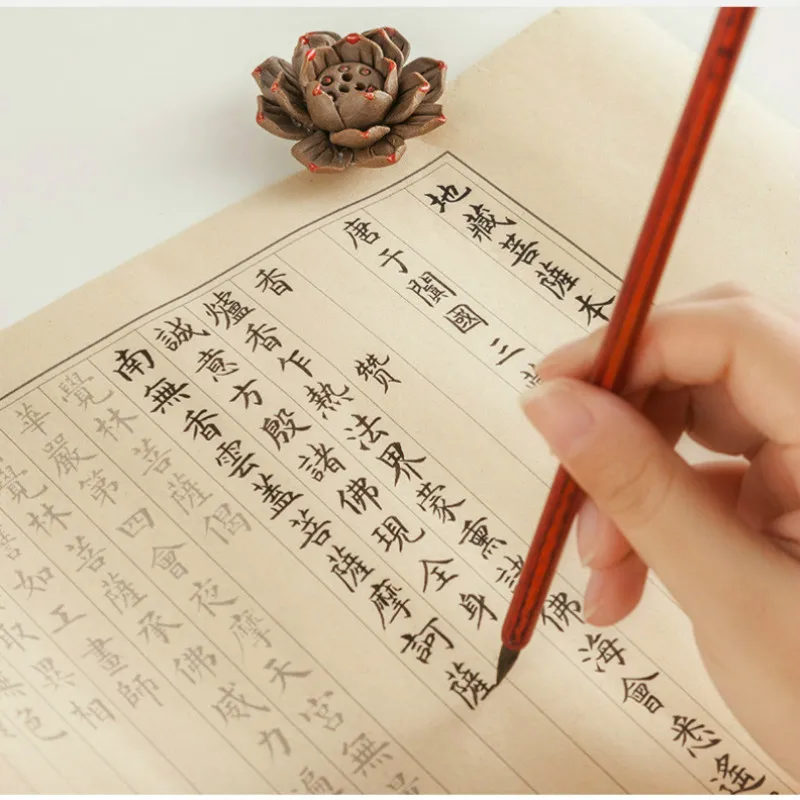 地藏菩薩本
唐于闐國三
香赞
爐香乍熱法界蒙熏諸佛海會悉遙
誠意方殷諸佛現全身
南無香雲蓋菩薩摩訶薩
覺林菩薩偈
華嚴第四會夜摩天宮無
覺林菩薩承佛威力遍
如工畫師
取異相
色